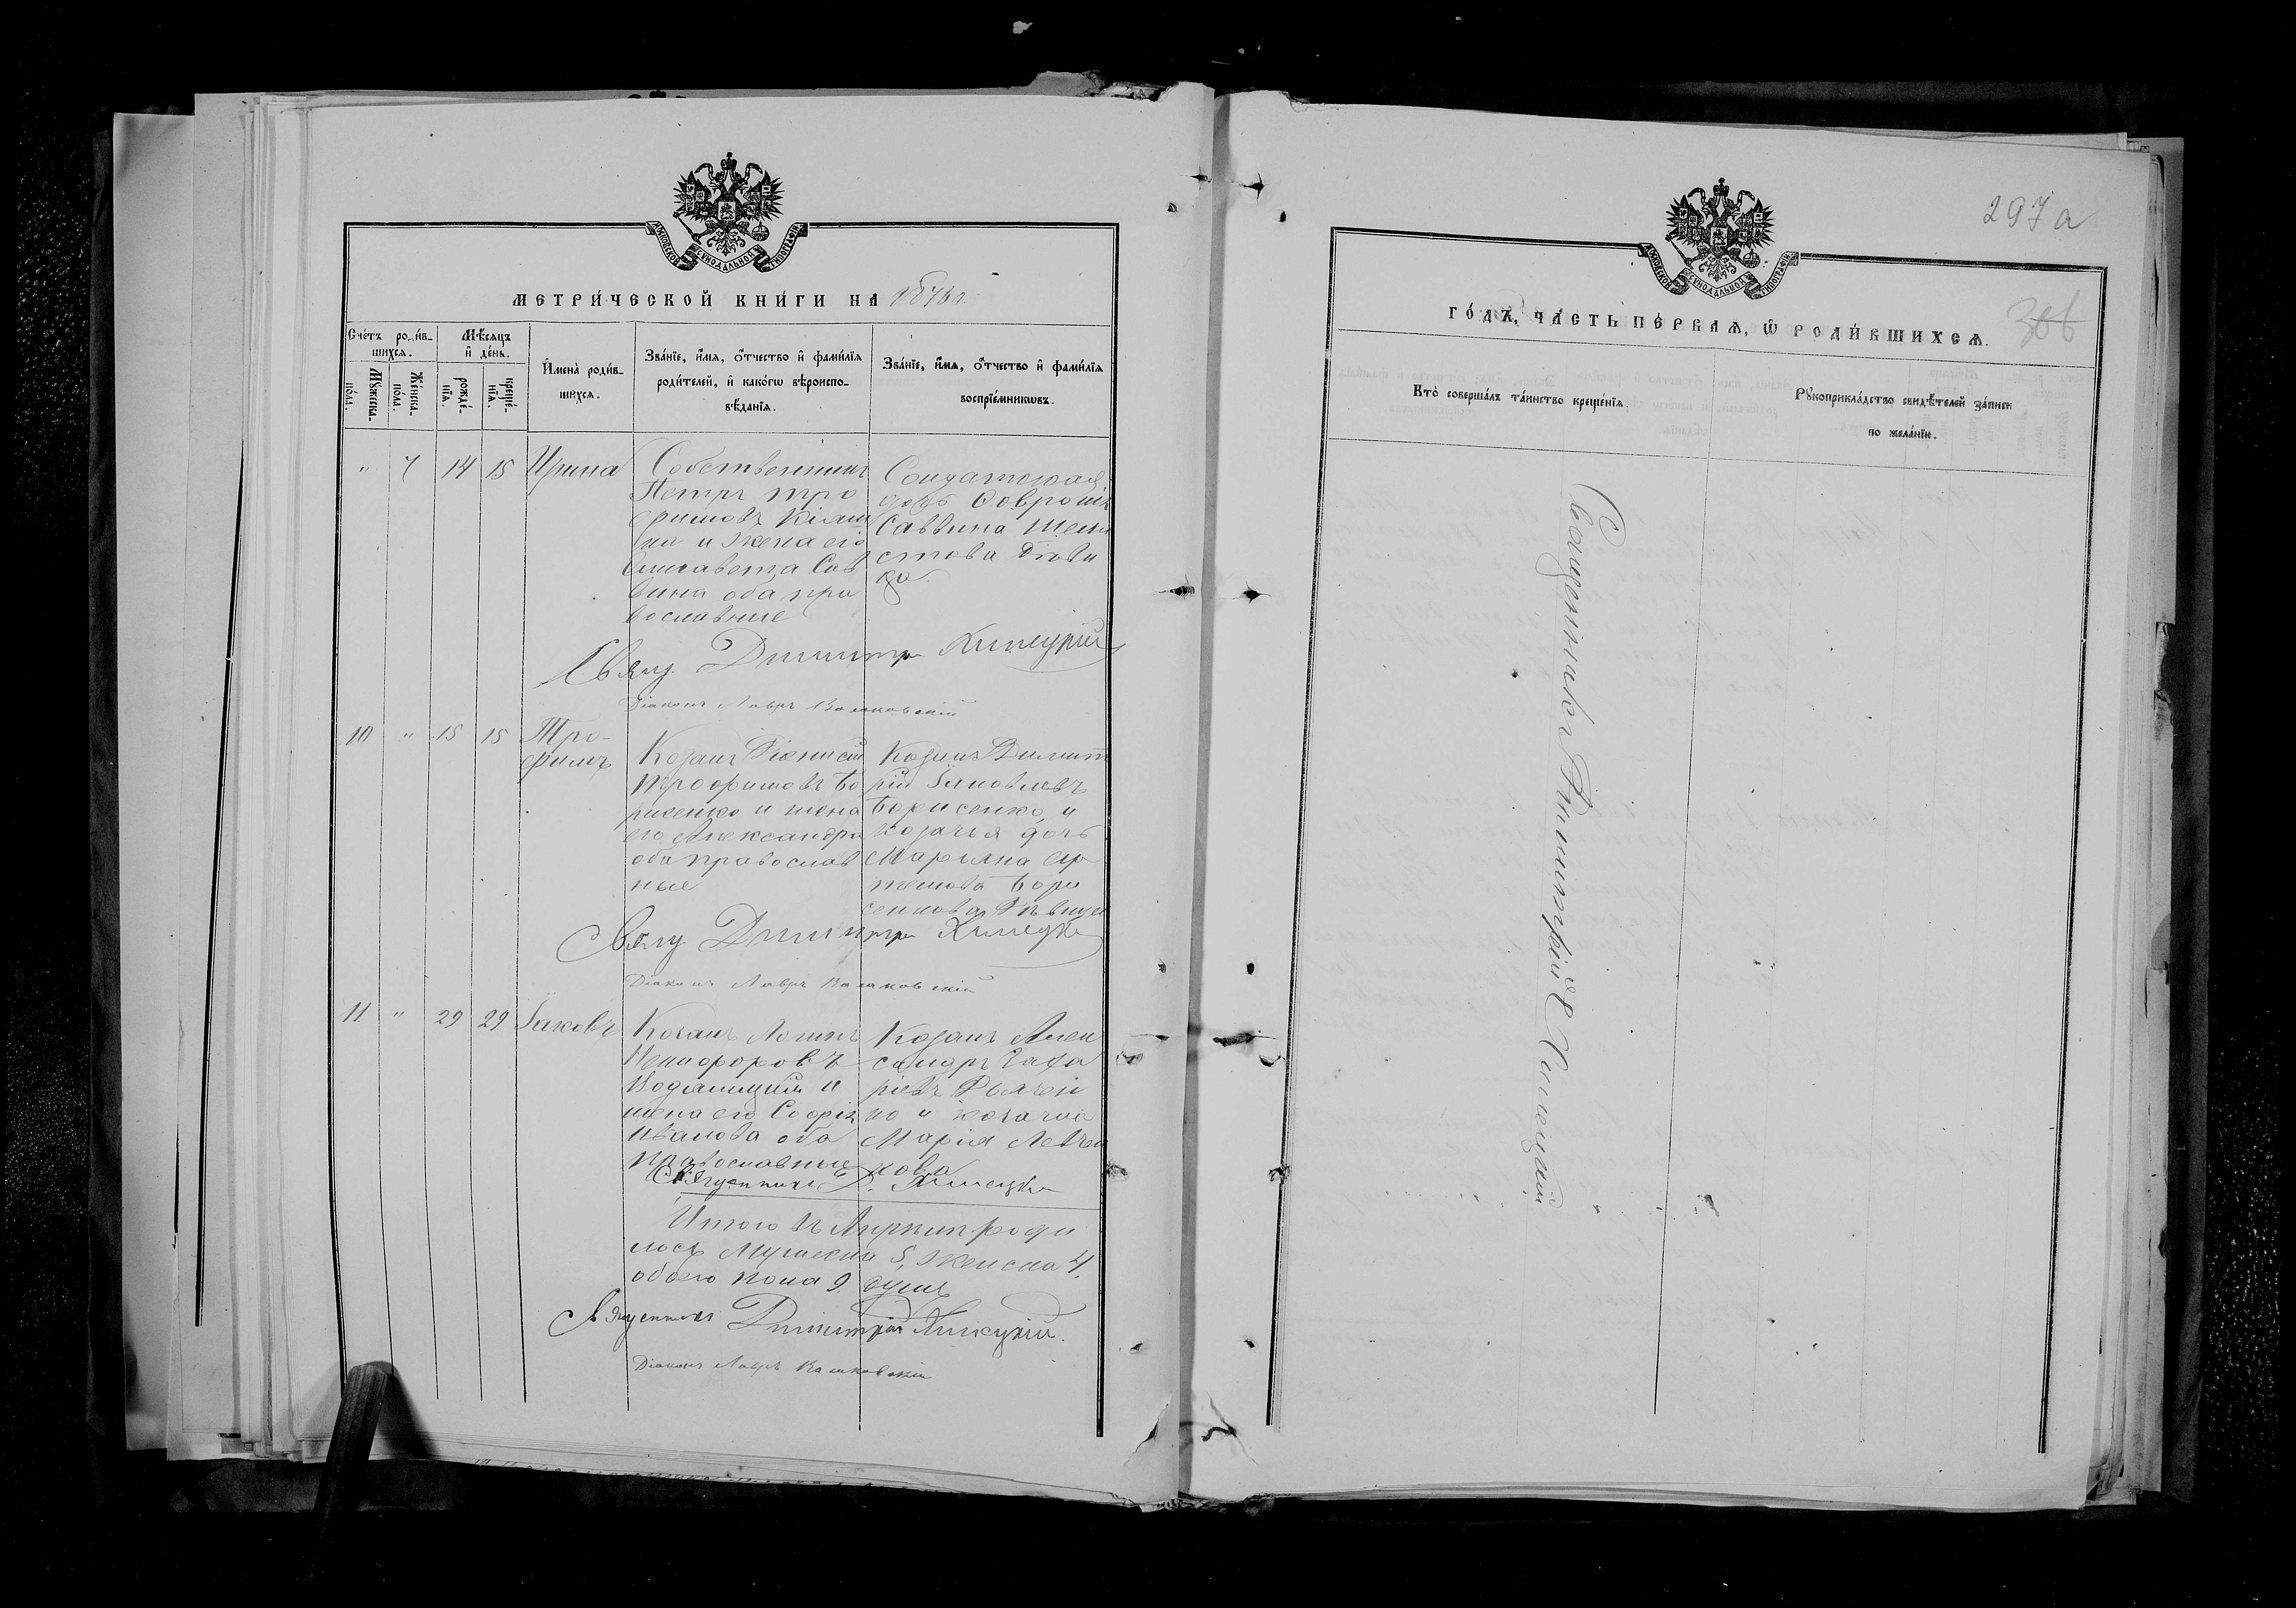 МОСКОВСКОЙ СѴНОДАЛЬНОЙ ТИПОГРАФІИ
МЕТРИ́ЧЕСКОЙ КНИ́ГИ НА 1876 г.
Сче́тъ роди́в-
шихсѧ.
Мꙋ́жеска.
по́ла.
Же́нска.
по́ла.
Мѣ́сѧцъ
и҆ де́нь.
рожде́-
нїѧ.
креще́-
нїѧ.
И҆мена̀ роди́в-
шихсѧ.
Зва́нїе, и҆́мѧ, ѻ҆́тчество и҆ фами́лїѧ
роди́телей, и҆ како́гѡ вѣроиспо-
вѣ́данїѧ.
Зва́нїе, и҆́мѧ, ѻ҆́тчество и҆ фами́лїѧ
воспрїе́мникѡвъ.
" 7 14 15 Ирина
Собственникъ
Петръ Тро
фимовъ
на и жена его
Елисавета Сав
вина оба пра
вославные
Солдатская
дочь
Саввина
дѣви
ца.
Свящ. Димитрій Хилецкій
Діаконъ Лавръ
10 " 15 15 Тро-
фимъ
Козакъ Діонисій
Трофимовъ Бо
рисенко и жена
его Александра
оба православ
ные
Козакъ Димит
рій Іаковлевъ
Борисенко, и
козачья дочь
Марьяна Ар
темова Бори
сенкова дѣвица
Свящ. Димитрій Хилецкій
Діаконъ Лавръ
11 " 29 29 Іаковъ
Козакъ Логинъ
Никифоровъ
и
жена его Софія
Иванова оба
православные
Козакъ Алек
сандръ Заха
ріевъ
ко и козачка
Марія Левчен
кова
Священникъ Д. Хилецкій
Итого въ Апрѣлѣ роди
лось Мужеска 5, Женска 4,
обоего пола 9 душъ
Священникъ Димитрій Хилецкій.
Діаконъ Лавръ
297а
306
МОСКОВСКОЙ СѴНОДАЛЬНОЙ ТИПОГРАФІИ
ГО́ДЪ, ЧА́СТЬ ПЕ́РВАѦ, Ѽ РОДИ́ВШИХСѦ.
Кто̀ соверша́лъ та́инство креще́нїѧ.
Рꙋкоприкла́дство свидѣ́телей за́писи
по жела́нїю.
Священникъ Димитрій Хилецкій